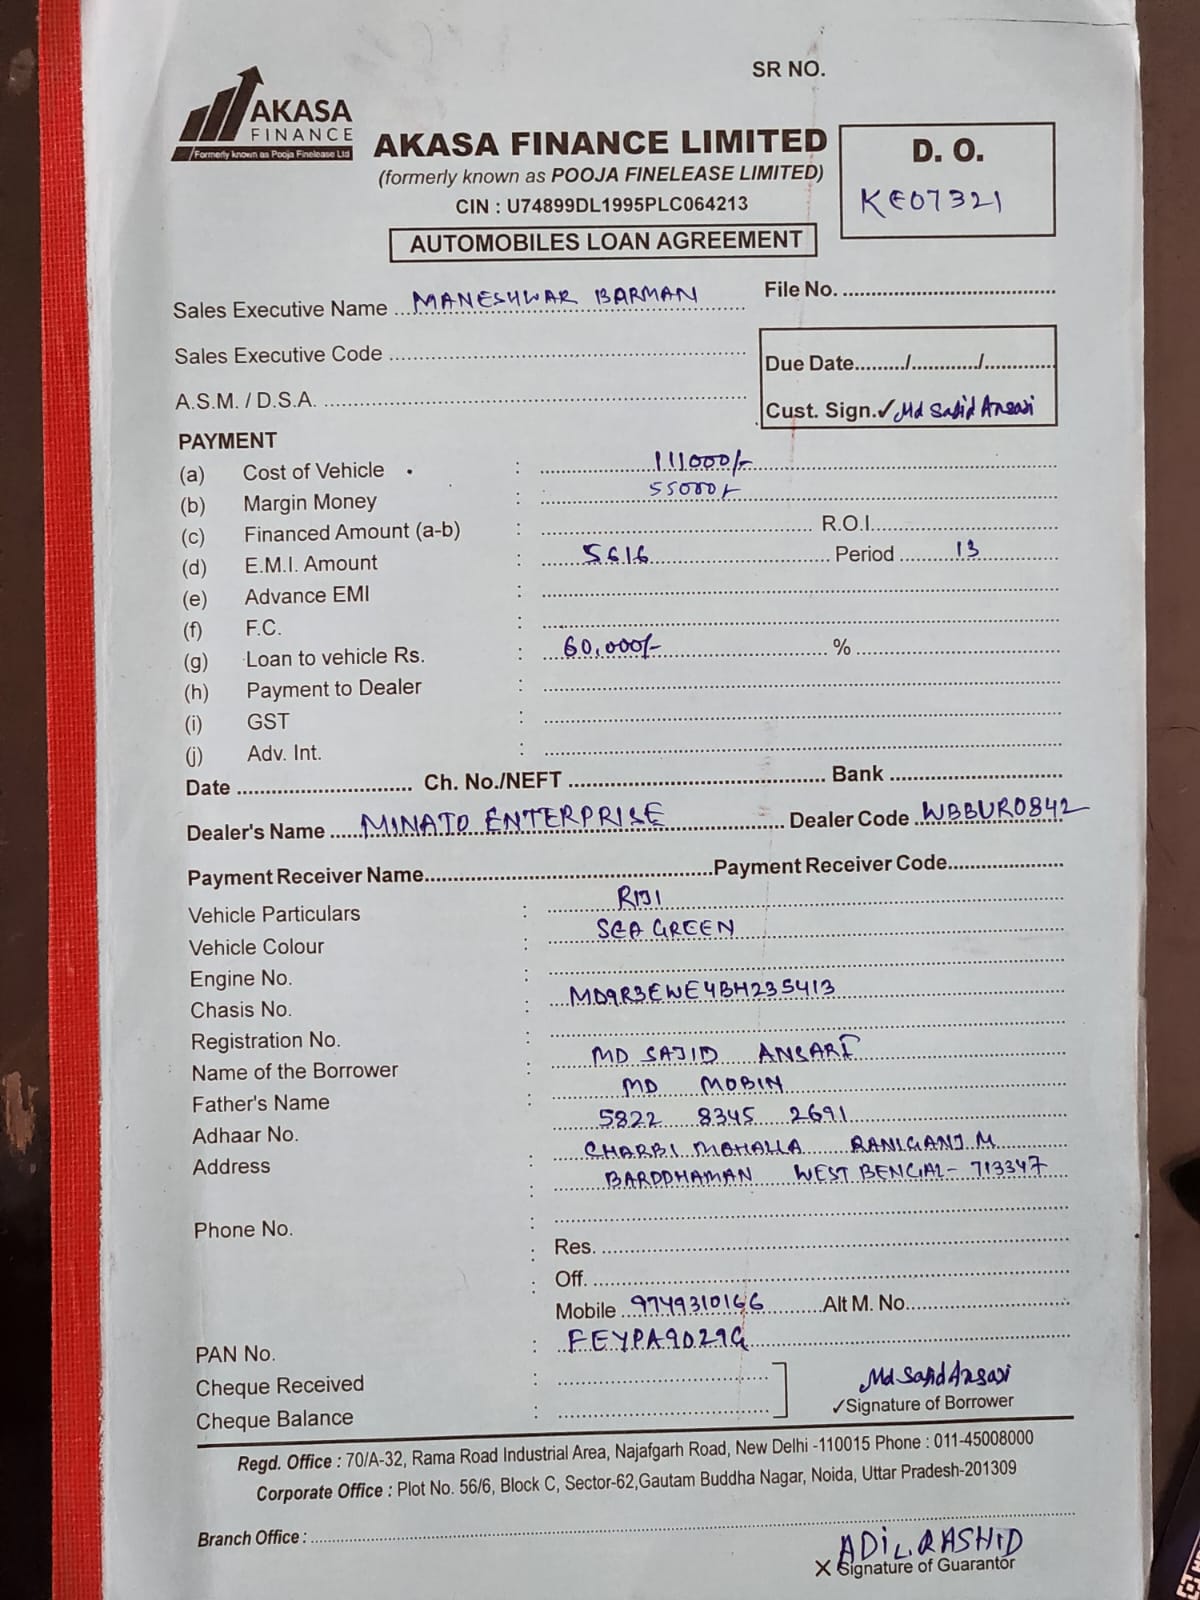 SR NO.
AKASA
FINANCE
Formerly known as Pooja Finelease Ltd
AKASA FINANCE LIMITED
(formerly known as POOJA FINELEASE LIMITED)
CIN : U74899DL1995PLC064213
AUTOMOBILES LOAN AGREEMENT
D. O.
KE07321
Sales Executive Name MANESHWAR BARMAN
File No.
Sales Executive Code
A.S.M. / D.S.A.
Due Date / /
Cust. Sign. ✓ Md Sajid Ansari
PAYMENT
(a) Cost of Vehicle : 111000/-
(b) Margin Money : 55000/-
(c) Financed Amount (a-b) : R.O.I.
(d) E.M.I. Amount : 5616 Period 13
(e) Advance EMI :
(f) F.C. :
(g) Loan to vehicle Rs. : 60,000/- %
(h) Payment to Dealer :
(i) GST :
(j) Adv. Int. :
Date Ch. No./NEFT Bank
Dealer's Name MINATO ENTERPRISE Dealer Code WBBUR0842
Payment Receiver Name Payment Receiver Code
Vehicle Particulars :
Vehicle Colour : SEA GREEN
Engine No. :
Chasis No. : MD9R3EWE4BH235413
Registration No. :
Name of the Borrower : MD SAJID ANSARI
Father's Name : MD MOBIN
Adhaar No. 5822 8345 2691
Address : CHARBI MOHALLA RANIGANJ M
: BARDDHAMAN WEST BENGAL- 713347
Phone No. :
: Res.
: Off.
Mobile 9749310166 Alt M. No.
PAN No. : FEYPA9029G
Cheque Received :
Cheque Balance :
Md Sajid Ansari
✓Signature of Borrower
Regd. Office : 70/A-32, Rama Road Industrial Area, Najafgarh Road, New Delhi -110015 Phone : 011-45008000
Corporate Office : Plot No. 56/6, Block C, Sector-62,Gautam Buddha Nagar, Noida, Uttar Pradesh-201309
Branch Office :
ADIL RASHID
X Signature of Guarantor